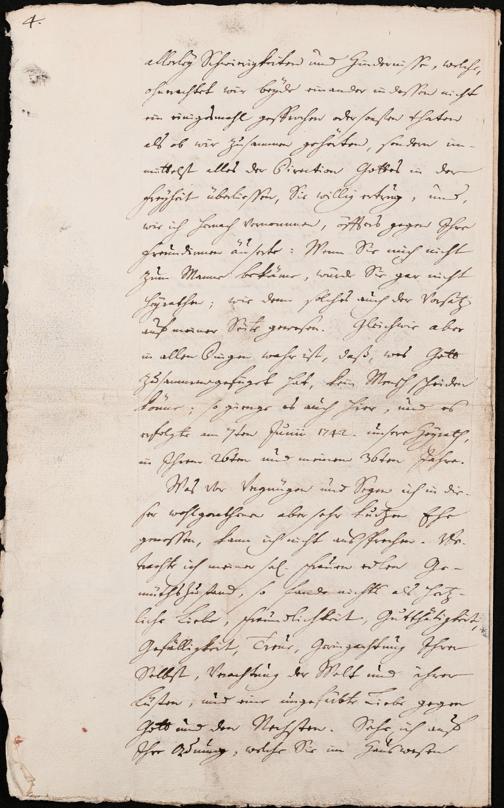 4.
allerley Schwierigkeiten und Hindernisse, welche,
ohnerachtet wir beyde einander indessen nicht
ein einigesmahl gesprochen oder sonsten thaten
als ob wir zusammen gehörten, sondern im-
mittelst alles der Direction Gottes in der
Freyheit überliessen, Sie willig ertrug, und,
wie ich hernach vernommen, öffters gegen Ihre
Freundinnen äuserte: Wenn Sie mich nicht
zum Manne bekäme, würde Sie gar nicht
heyrathen; wie denn solches auch der Vorsatz
auf meiner Seite gewesen. Gleichwie aber
in allen Dingen wahr ist, daß, was Gott
zusammengefüget hat, kein Mensch scheiden
könne; so gienge es auch hier, und es
erfolgte am 7ten Junii 1742. unsere Heyrath,
in Ihrem 26ten und meinem 36ten Jahre.
Was vor Vergnügen und Segen ich in die-
ser wohlgerathenen aber sehr kurtzen Ehe
genossen, kann ich nicht aussprechen. Be-
trachte ich meiner sel. Frauen edlen Ge-
müthszustand, so fande nichts als hertz-
liche Liebe, Freundlichkeit, Gutthätigkeit,
Gefälligkeit, Treue, Geringachtung Ihrer
Selbst, Verachtung der Welt und ihrer
Lüsten, und eine ungefärbte Liebe gegen
Gott und den Nechsten. Sehe ich auf
Ihre Ordnung, welche Sie im Hauswesen